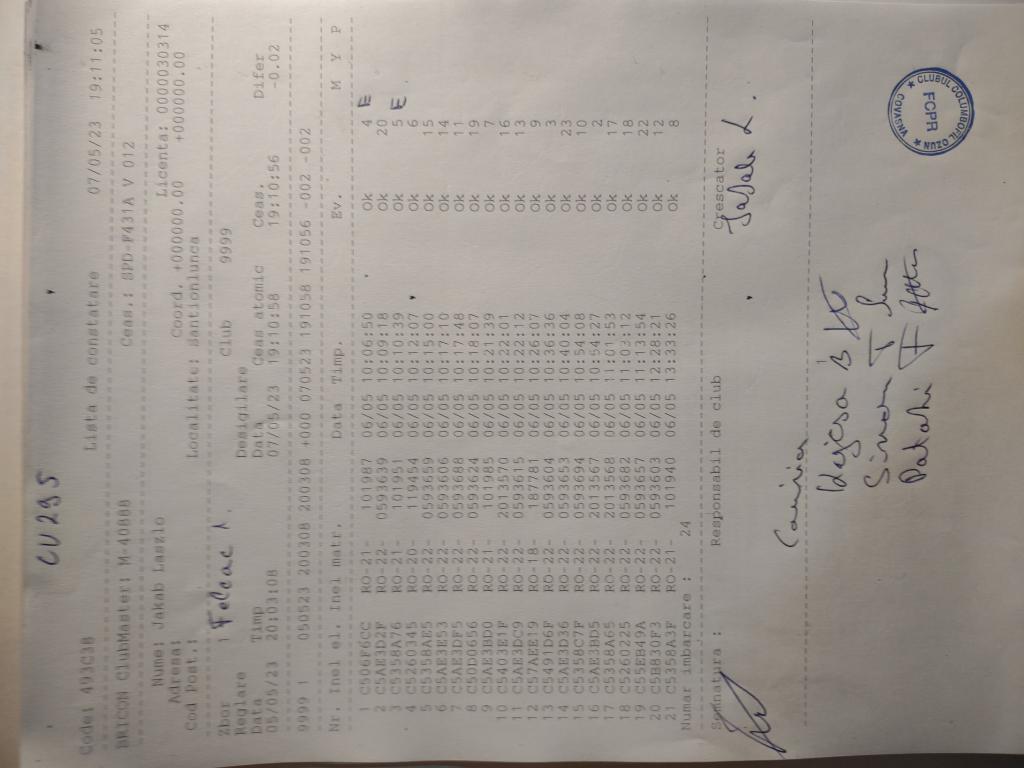 CV295
Code: 493C38 Lista de constatare 07/05/23 19:11:05
BRICON ClubMaster: M-40888 Ceas.: SPD-F431A V 012
Nume: Jakab Laszlo Licenta: 0000030314
Adresa: Coord. +000000.00 +000000.00
Cod Post.: Localitate: Santionlunca
Zbor : Feleac 1. Club 9999
Reglare Desigilare
Data Timp Data Ceas atomic Ceas. Difer
05/05/23 20:03:08 07/05/23 19:10:58 19:10:56 -0.02
9999 1 050523 200308 200308 +000 070523 191058 191056 -002 -002
Nr. Inel el. Inel matr. Data Timp. Ev. M Y P
1 C506F6CC RO-21- 101987 06/05 10:06:50 Ok 4 E
2 C5AE3D2F RO-22- 0593639 06/05 10:09:18 Ok 20
3 C5358A76 RO-21- 101951 06/05 10:10:39 Ok 5 E
4 C5260345 RO-20- 19454 06/05 10:12:07 Ok 6
5 C5358AE5 RO-22- 0593659 06/05 10:15:00 Ok 15
6 C5AE3E53 RO-22- 0593606 06/05 10:17:10 Ok 14
7 C5AE3DF5 RO-22- 0593688 06/05 10:17:48 Ok 11
8 C50D0656 RO-22- 0593624 06/05 10:18:07 Ok 19
9 C5AE3BD0 RO-21- 101985 06/05 10:21:39 Ok 7
10 C5403E1F RO-22- 2013570 06/05 10:22:01 Ok 16
11 C5AE3DC9 RO-22- 0593615 06/05 10:22:12 Ok 13
12 C57AEE19 RO-18- 187781 06/05 10:26:07 Ok 9
13 C5491D6F RO-22- 0593604 06/05 10:36:36 Ok 3
14 C5AE3D36 RO-22- 0593653 06/05 10:40:04 Ok 23
15 C5358C7F RO-22- 0593694 06/05 10:54:08 Ok 10
16 C5AE3BD5 RO-22- 2013567 06/05 10:54:27 Ok 2
17 C5358A65 RO-22- 2013568 06/05 11:01:53 Ok 17
18 C5260225 RO-22- 0593682 06/05 11:03:12 Ok 18
19 C55EB49A RO-22- 0593657 06/05 11:13:54 Ok 22
20 C5BB30F3 RO-22- 0593603 06/05 12:28:21 Ok 12
21 C5358A3F RO-21- 101940 06/05 13:33:26 Ok 8
Numar imbarcare : 24
Semnatura : Responsabil de club Crescator
Jakab L.
Simon T
CLUBUL COLUMBOFIL OZUN ★ COVASNA ★
FCPR